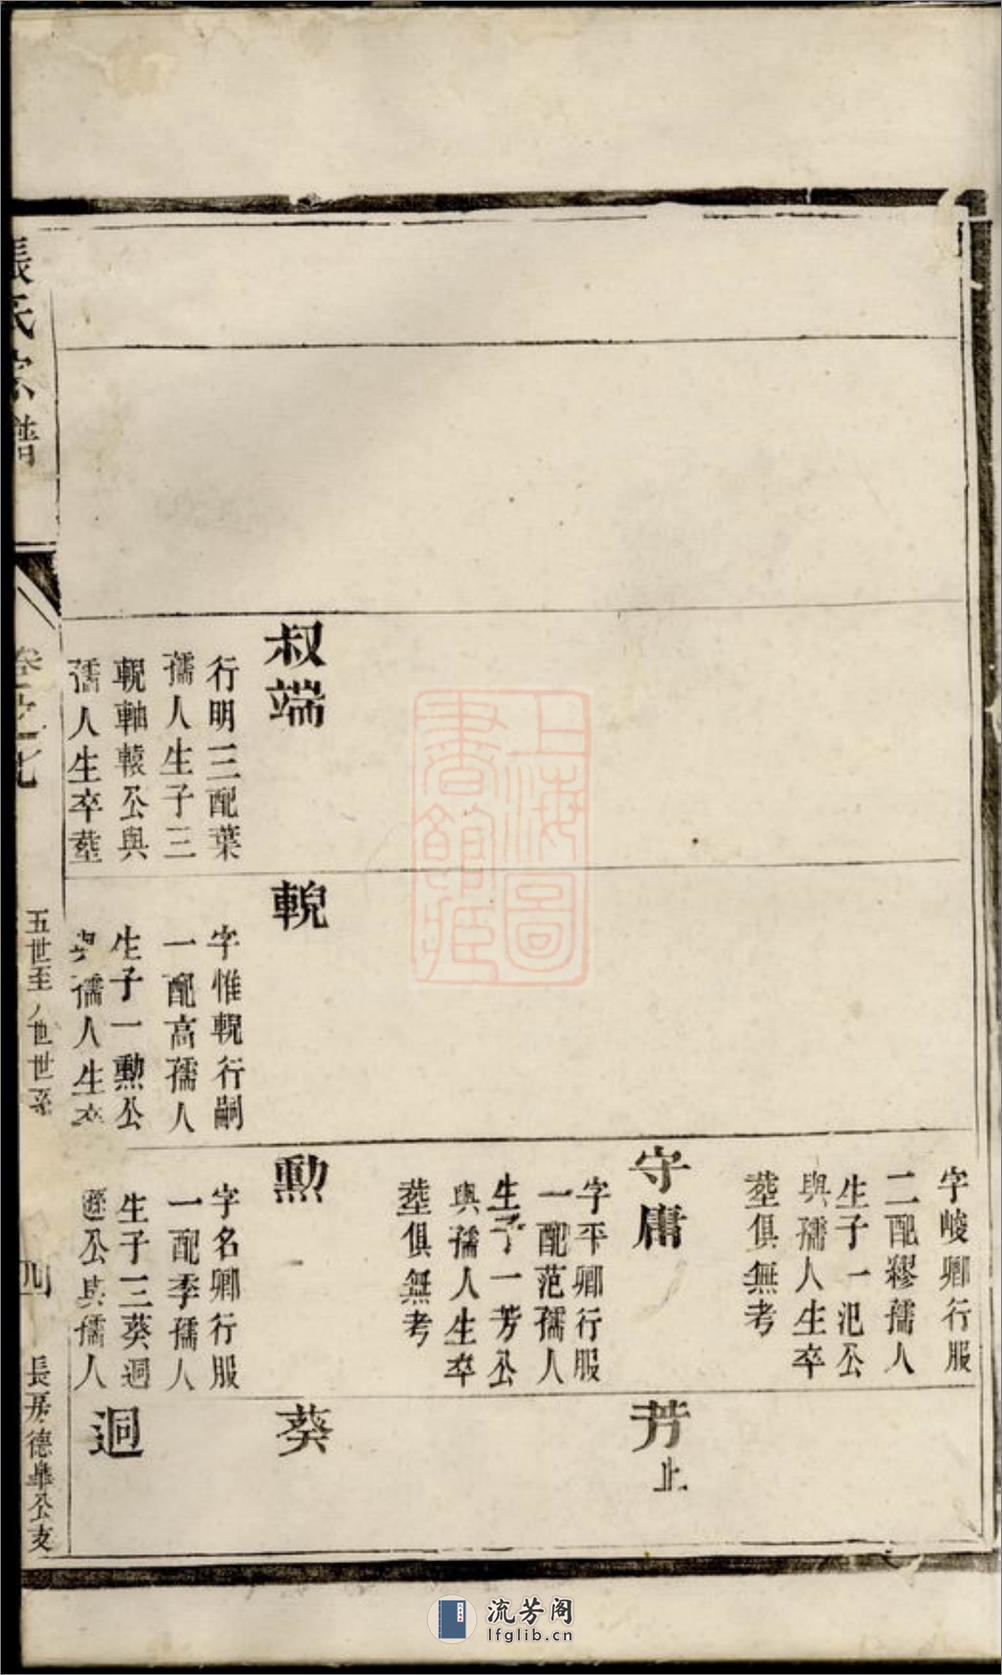 叔端
行明三配葉
孺人生子三
輗軸轅公與
孺人生卒塟
輗
字惟輗行嗣
一配高孺人
生子一勲公
與孺人生卒
字峻卿行服
二配繆孺人
生子一汜公
與孺人生卒
塟俱無考
守庸
字平卿行服
一配范孺人
生子一芳公
與孺人生卒
塟俱無考
勲
字名卿行服
一配季孺人
生子三葵迴
公與孺人
芳止
葵
迴
張氏宗譜
卷之七
五世至八世世系
四
長房德皐公支
上海圖
書館藏
流芳阁
lfglib.cn